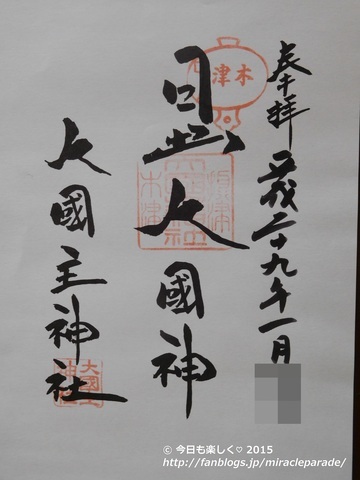 奉拝
平成二十九年一月
木津
日出大國神
大國主神社
© 今日も楽しく♡ 2015
http://fanblogs.jp/miracleparade/